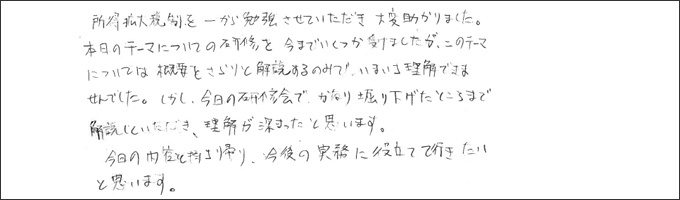 所得拡大税制を一から勉強させていただき大変助かりました。
本日のテーマについての研修を今までいくつか受けましたが、このテーマ
については概要をさらりと解説あるのみで、いまいち理解できま
せんでした。しかし、今日の研修会で、かなり掘り下げたところまで
解説していただき、理解が深まったと思います。
今日の内容を持ち帰り、今後の実務に役立てて行きたい
と思います。